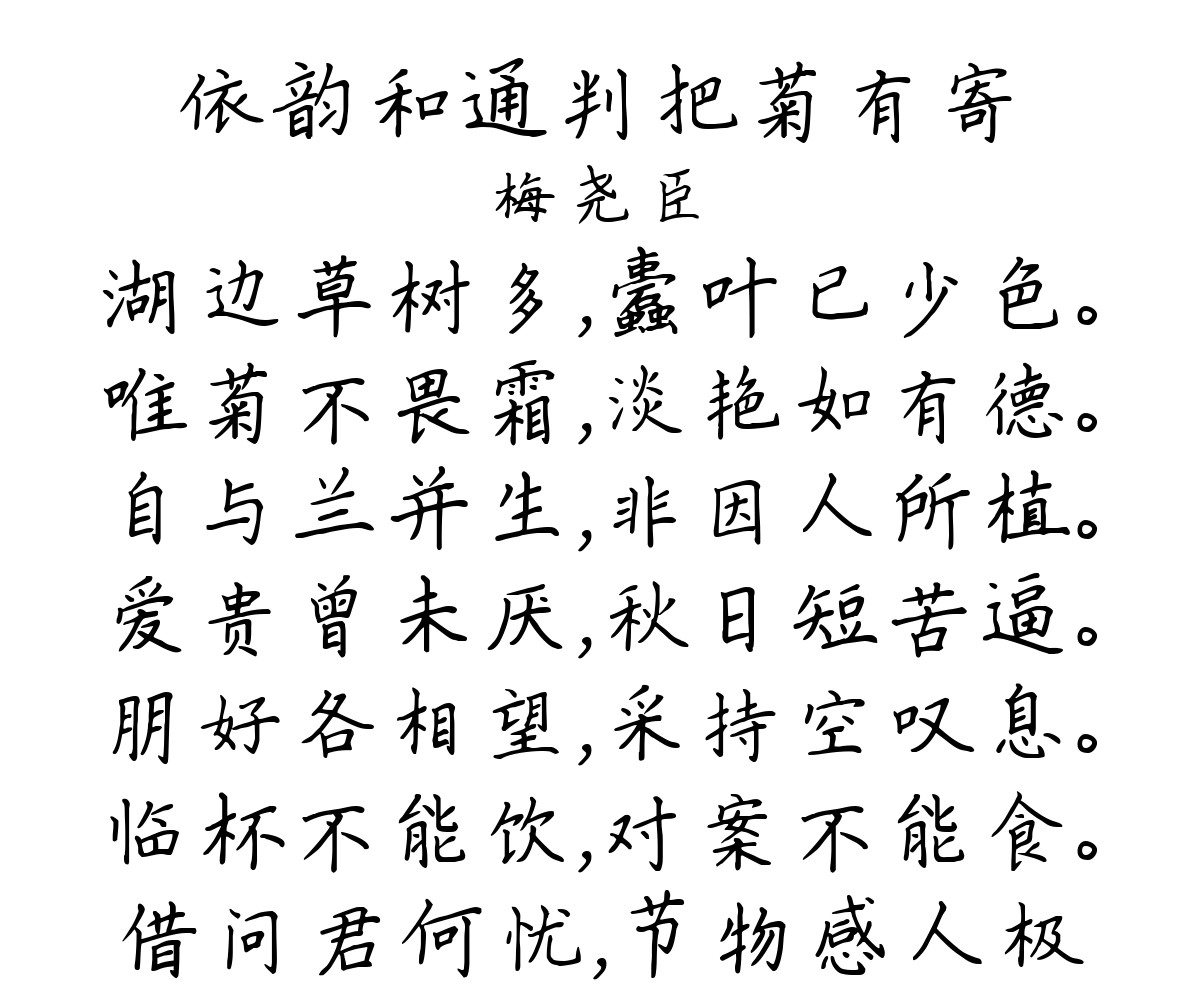 依韵和通判把菊有寄
梅尧臣
湖边草树多,蠹叶已少色。
唯菊不畏霜,淡艳如有德。
自与兰并生,非因人所植。
爱贵曾未厌,秋日短苦逼。
朋好各相望,采持空叹息。
临杯不能饮,对案不能食。
借问君何忧,节物感人极